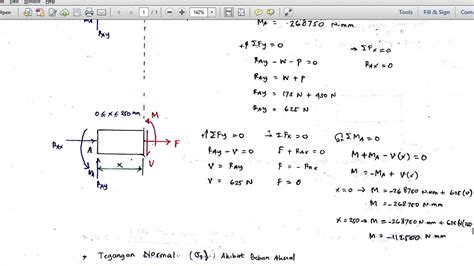 1 / 1
142%
Tools
Fill & Sign
Comm
MA
RAy
MA = -268750 N.mm
+↑ ΣFy = 0
RAy - W - P = 0
RAy = W + P
RAy = 175 N + 450 N
RAy = 625 N
→ ΣFx = 0
RAx = 0
0 ≤ x ≤ 250 mm
M
RAx
A
F
MA
x
V
RAy
+↑ ΣFy = 0
RAy - V = 0
V = RAy
V = 625 N
→ ΣFx = 0
F + RAx = 0
F = - RAx
F = 0
ΣMA = 0
M + MA - V(x) = 0
M = -MA + V(x)
x=0 → M = -268750 N.mm + 625(0)
M = -268750 N.mm
x=250 → M = -268750 N.mm + 625(
M = -112500 N.mm
* Tegangan Normal: Akibat Beban Aksial